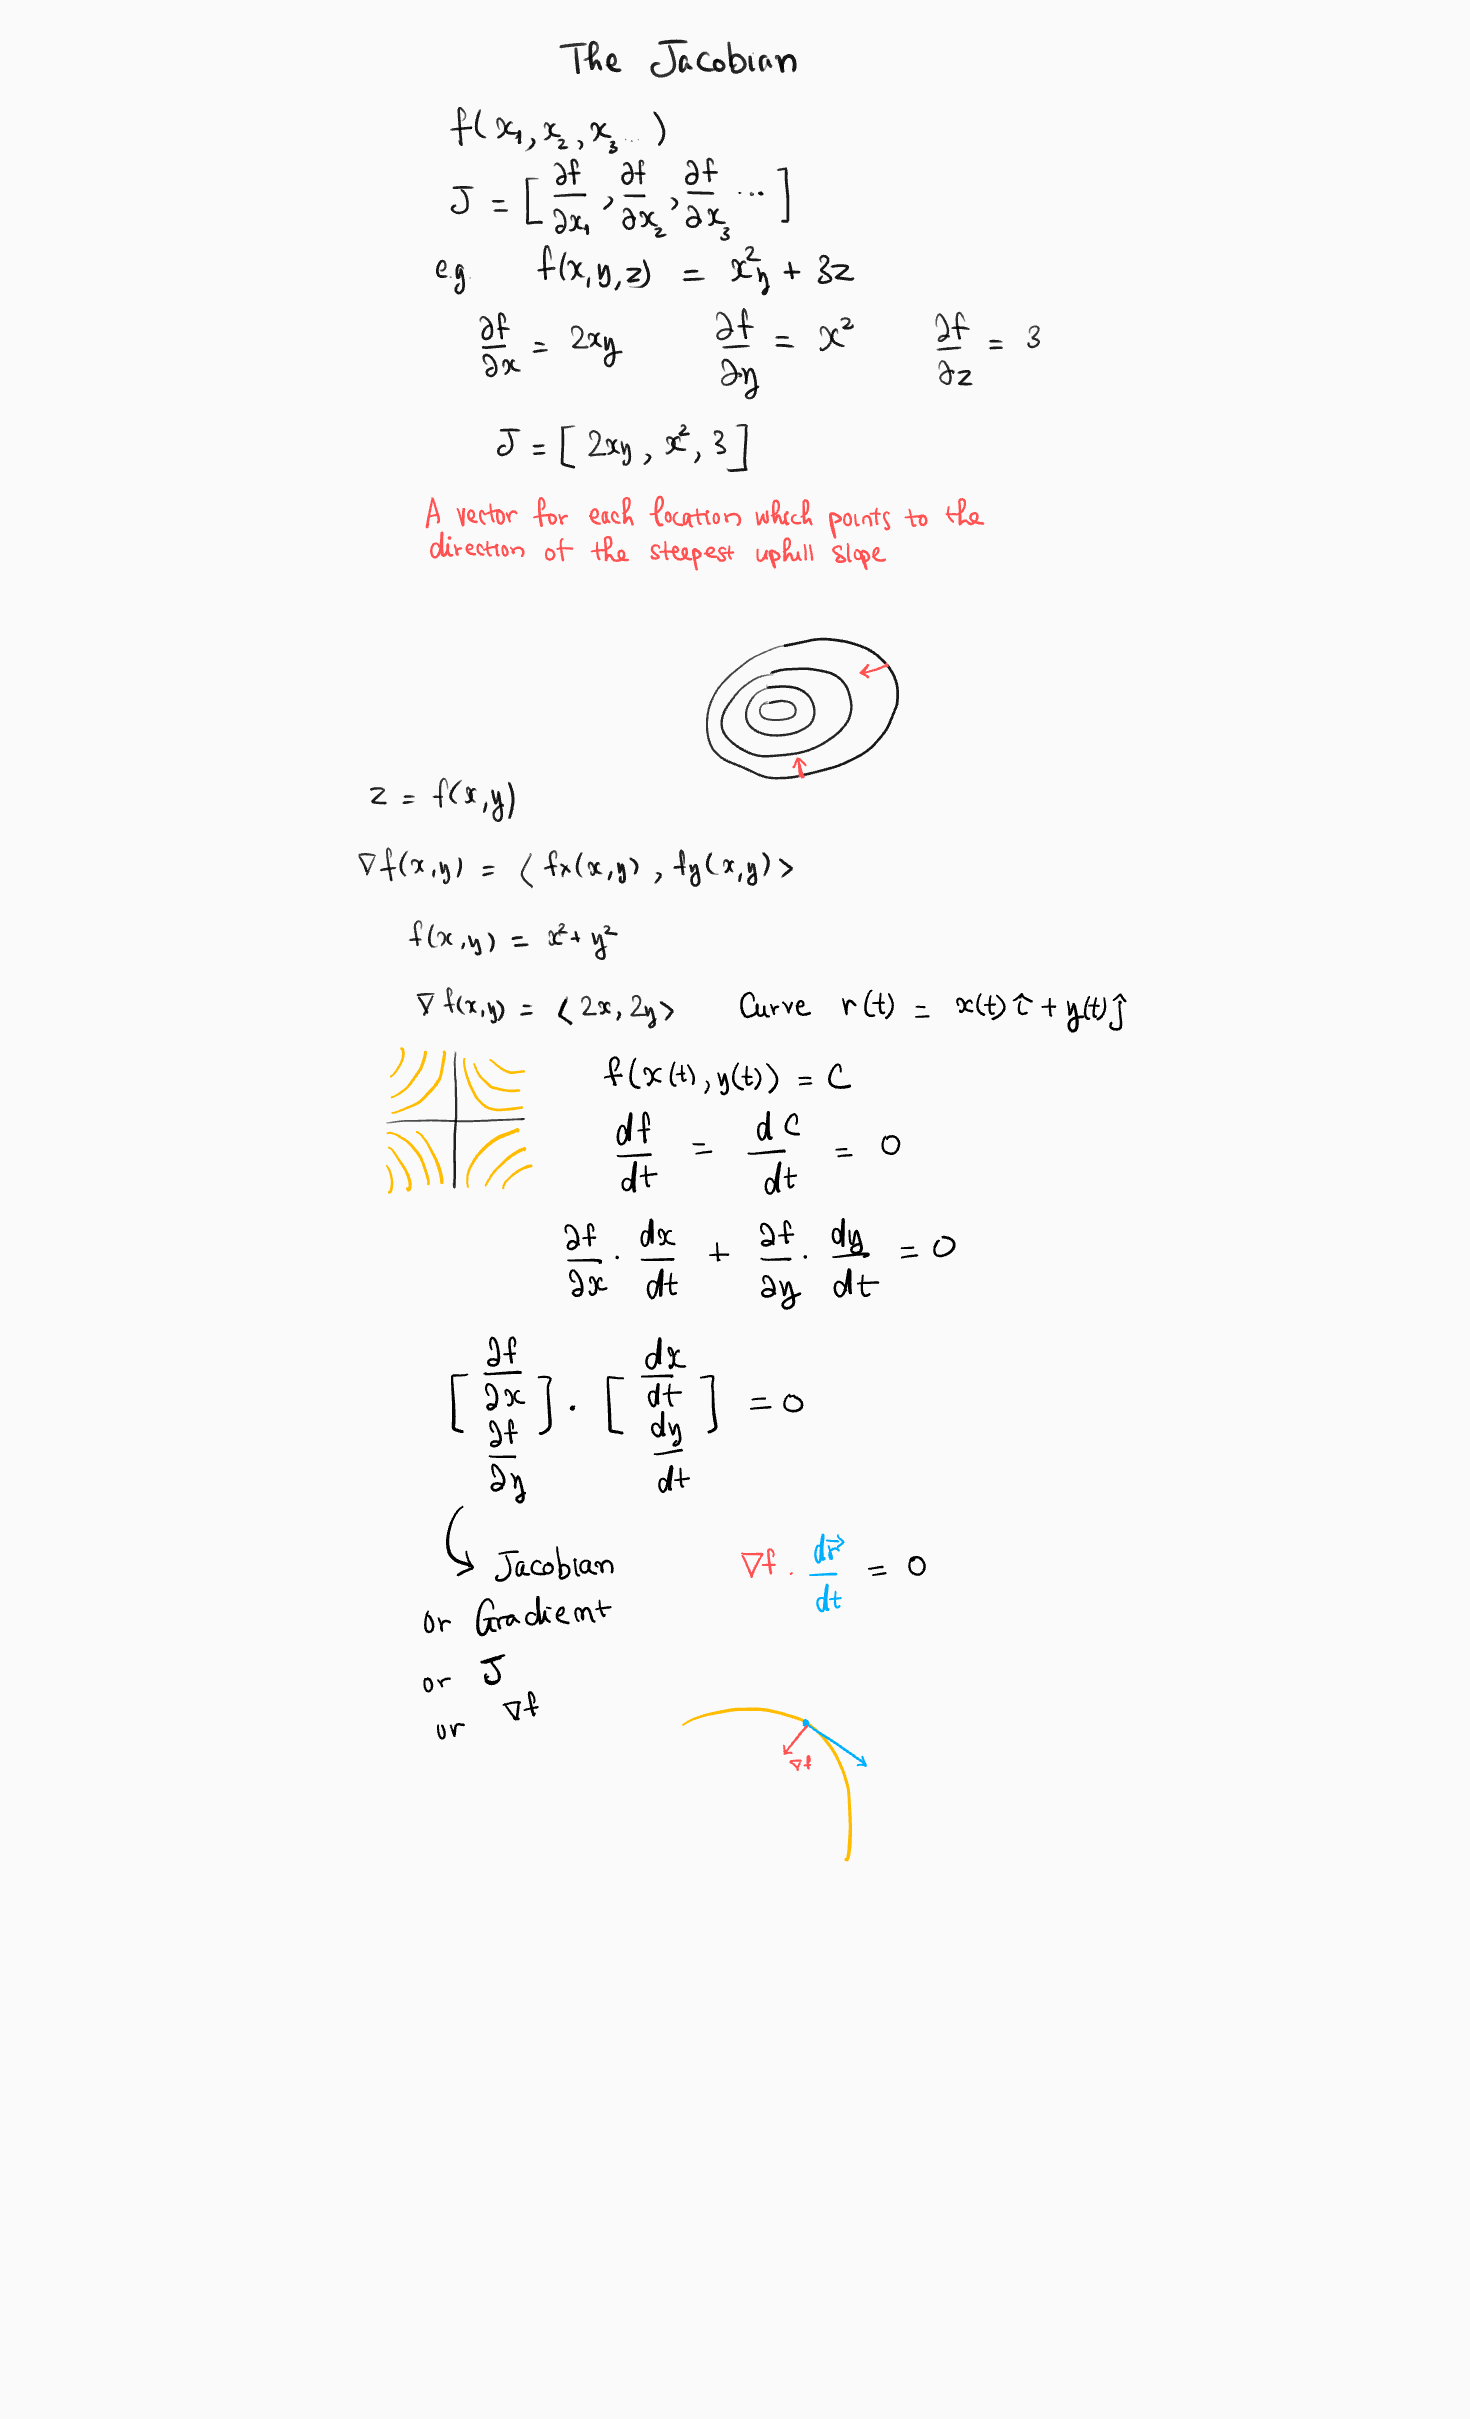 The Jacobian
f(x₁, x₂, x₃ ... )
J = [ ∂f/∂x₁ , ∂f/∂x₂ , ∂f/∂x₃ ... ]
e.g. f(x, y, z) = x²y + 3z
∂f/∂x = 2xy ∂f/∂y = x² ∂f/∂z = 3
J = [ 2xy , x² , 3 ]
A vector for each location which points to the
direction of the steepest uphill slope
z = f(x,y)
∇f(x,y) = ⟨ fx(x,y) , fy(x,y) ⟩
f(x,y) = x² + y²
∇f(x,y) = ⟨ 2x, 2y ⟩ Curve r(t) = x(t) î + y(t) ĵ
f(x(t), y(t)) = C
df/dt = dC/dt = 0
∂f/∂x · dx/dt + ∂f/∂y · dy/dt = 0
[ ∂f/∂x ∂f/∂y ] · [ dx/dt dy/dt ] = 0
Jacobian ∇f · dr⃗/dt = 0
or Gradient
or J
or ∇f
∇f